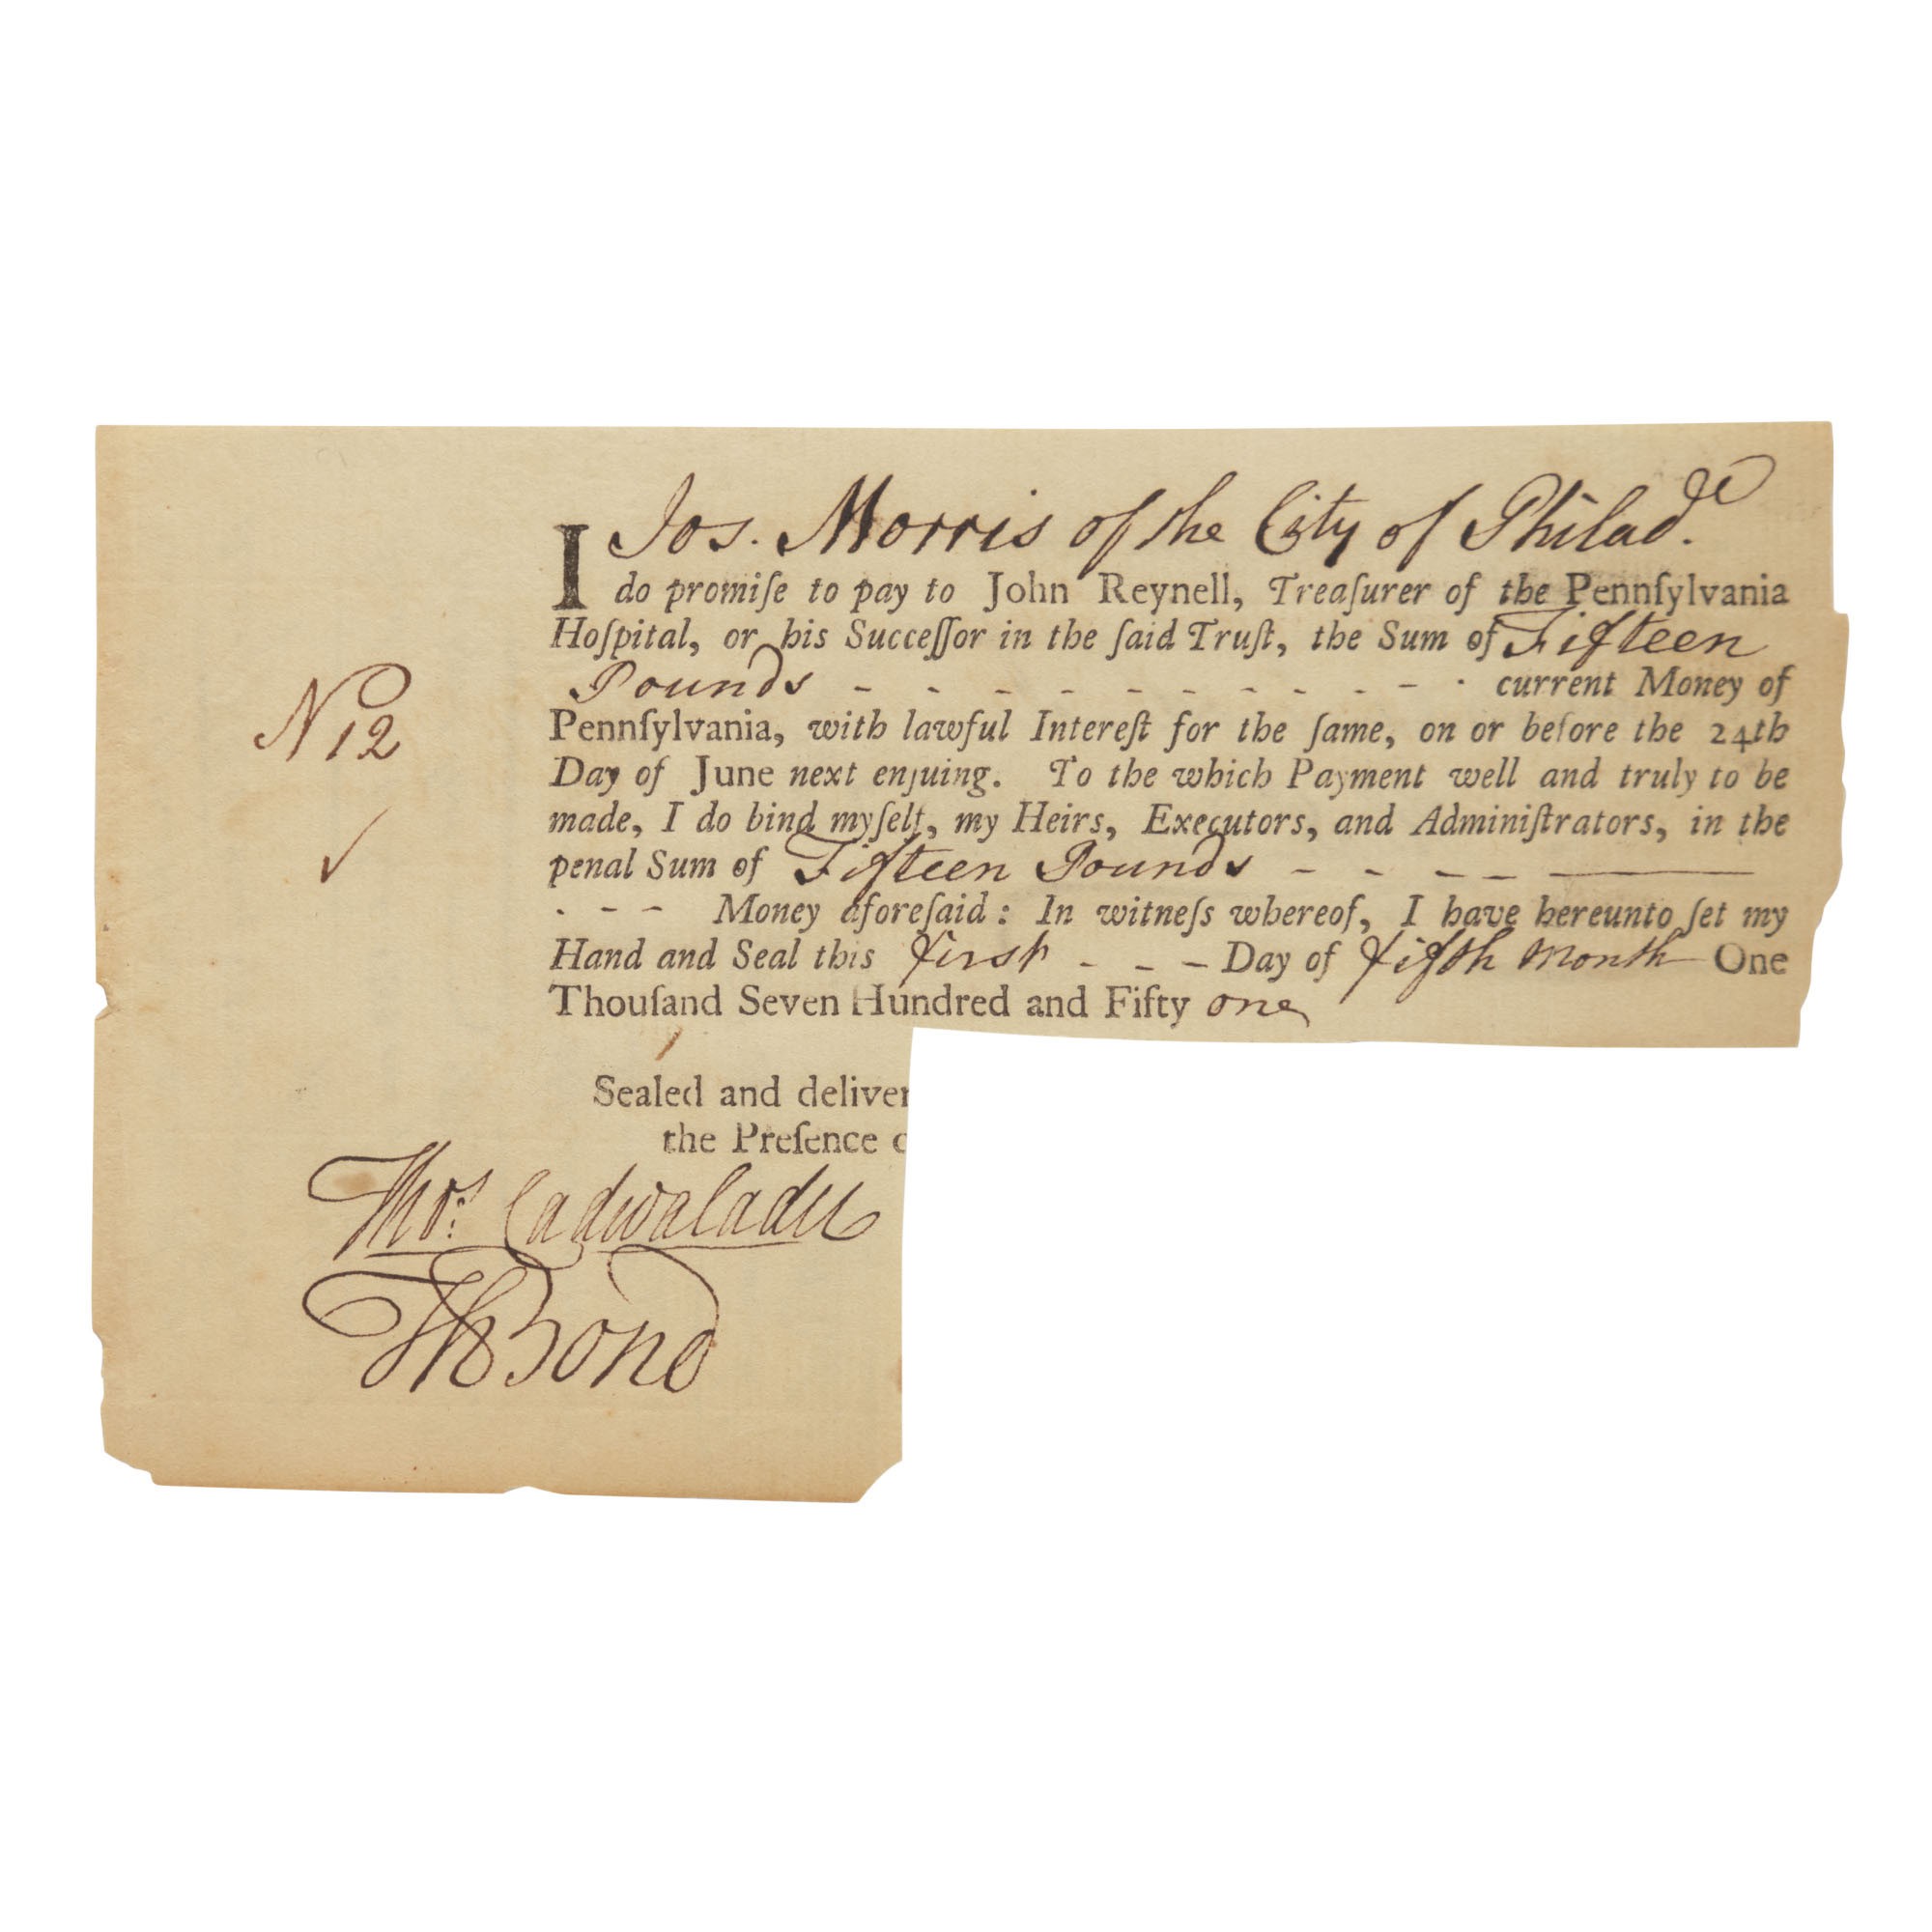 I Jos. Morris of the City of Philad.e
do promiſe to pay to John Reynell, Treaſurer of the Pennſylvania
Hoſpital, or his Succeſſor in the ſaid Truſt, the Sum of Fifteen
Pounds - - - - - - - - - - - current Money of
Pennſylvania, with lawful Intereſt for the ſame, on or before the 24th
Day of June next enſuing. To the which Payment well and truly to be
made, I do bind myſelf, my Heirs, Executors, and Adminiſtrators, in the
penal Sum of Fifteen Pounds - - - - —
- - - Money aforeſaid: In witneſs whereof, I have hereunto ſet my
Hand and Seal this first - - - Day of fifth Month One
Thouſand Seven Hundred and Fifty one
No 12
Sealed and deliver
the Preſence o
Thos. Cadwalader
Th Bond